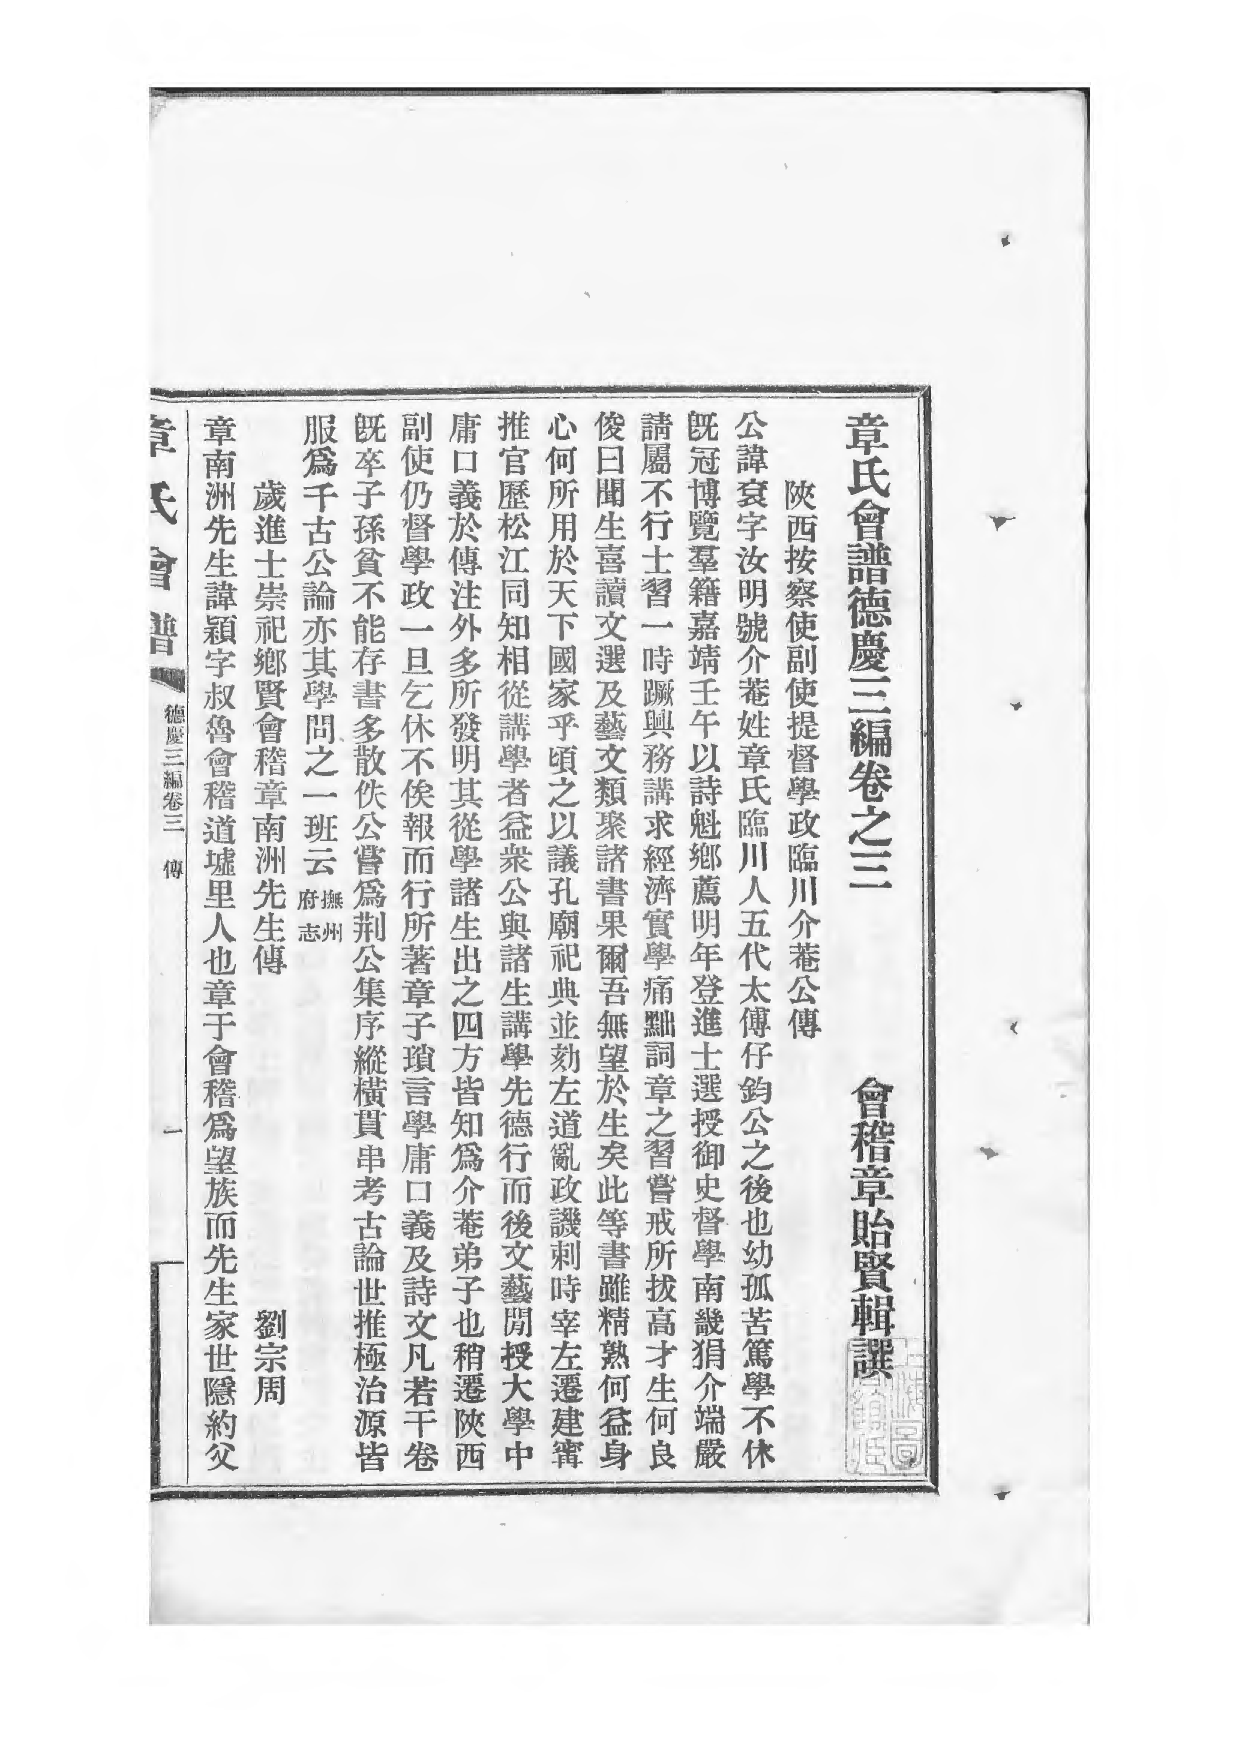 章氏會譜德慶三編卷之三 會稽章貽賢輯譔
陝西按察使副使提督學政臨川介菴公傳
公諱袞字汝明號介菴姓章氏臨川人五代太傅仔鈞公之後也幼孤苦篤學不休
旣冠博覽羣籍嘉靖壬午以詩魁鄉薦明年登進士選授御史督學南畿狷介端嚴
請屬不行士習一時蹶興務講求經濟實學痛黜詞章之習嘗戒所拔高才生何良
俊曰聞生喜讀文選及藝文類聚諸書果爾吾無望於生矣此等書雖精熟何益身
心何所用於天下國家乎頃之以議孔廟祀典並劾左道亂政譏刺時宰左遷建甯
推官歷松江同知相從講學者益衆公與諸生講學先德行而後文藝閒授大學中
庸口義於傳注外多所發明其從學諸生出之四方皆知爲介菴弟子也稍遷陝西
副使仍督學政一旦乞休不俟報而行所著章子瑣言學庸口義及詩文凡若干卷
旣卒子孫貧不能存書多散佚公嘗爲荆公集序縱橫貫串考古論世推極治源皆
服爲千古公論亦其學問之一班云 撫州府志
歲進士崇祀鄉賢會稽章南洲先生傳 劉宗周
章南洲先生諱穎字叔魯會稽道墟里人也章于會稽爲望族而先生家世隱約父
章氏會譜 德慶三編卷三 傳 一